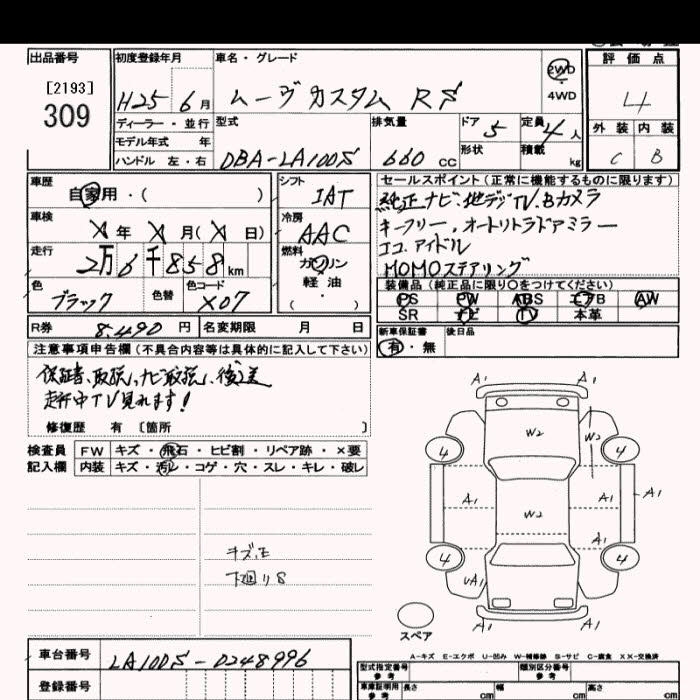 出品番号
[2193]
309
初度登録年月
H25 6月
車名・グレード
ムーヴカスタム RS
2WD
4WD
評価点
4
外装 内装
C B
ディーラー・並行
モデル年式 年
ハンドル 左・右
型式
DBA-LA100S
排気量
660 cc
ドア 5
形状
定員 4人
積載 kg
車歴
自家用・( )
車検
X年 X月(X日)
走行
2万6千858km
色
ブラック
色替
色コード
X07
シフト
IAT
冷房
AAC
燃料
ガソリン
軽油
( )
セールスポイント(正常に機能するものに限ります)
純正ナビ、地デジTV、Bカメラ
キーフリー、オートリトラドアミラー
エコアイドル
MOMOステアリング
装備品(純正品に限り○をつけてください)
PS PW ABS エアB AW
SR ナビ TV 本革
R券 8,490円 名変期限 月 日
新車保証書
有・無
後日品
注意事項申告欄(不具合内容等は具体的に記入して下さい)
保証書、取説、ナビ取説、後送
走行中TV見れます!
修復歴 有 [箇所 ]
検査員
記入欄
FW キズ・飛石・ヒビ割・リペア跡・×要
内装 キズ・汚レ・コゲ・穴・スレ・キレ・破レ
キズ、E
下廻りS
A1 A1
W2 W2
4 4
A1 A1 A1
W2
A1
4 4
UA1
A1 A1
スペア
A-キズ E-エクボ U-凹み W-補修跡 S-サビ C-腐食 XX-交換済
車台番号 LA100S-0248996
登録番号
型式指定番号
参考
類別区分番号
参考
車庫証明用
参考
長さ cm 幅 cm 高さ cm